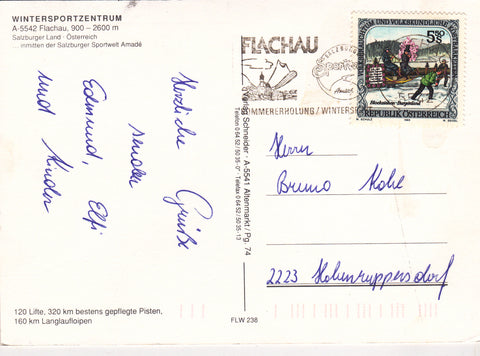 WINTERSPORTZENTRUM
A-5542 Flachau, 900 – 2600 m
Salzburger Land · Österreich
... inmitten der Salzburger Sportwelt Amadé
Herzliche Grüße
senden
Edmund, Elfi
und Kinder
120 Lifte, 320 km bestens gepflegte Pisten,
160 km Langlaufloipen
Verlag Schneider · A-5541 Altenmarkt / Pg. 74
Telefon 0 64 52 / 50 35-0 · Telefax 0 64 52 / 50 35-13
FLW 238
FLACHAU
SOMMERERHOLUNG / WINTERS
5.50
S
BRAUCHTUM UND VOLKSKUNDLICHE KOSTBARKEITEN
Blochziehen Burgenland
REPUBLIK ÖSTERREICH
Herrn
Bruno Kohe
2223 Hohenruppersdorf